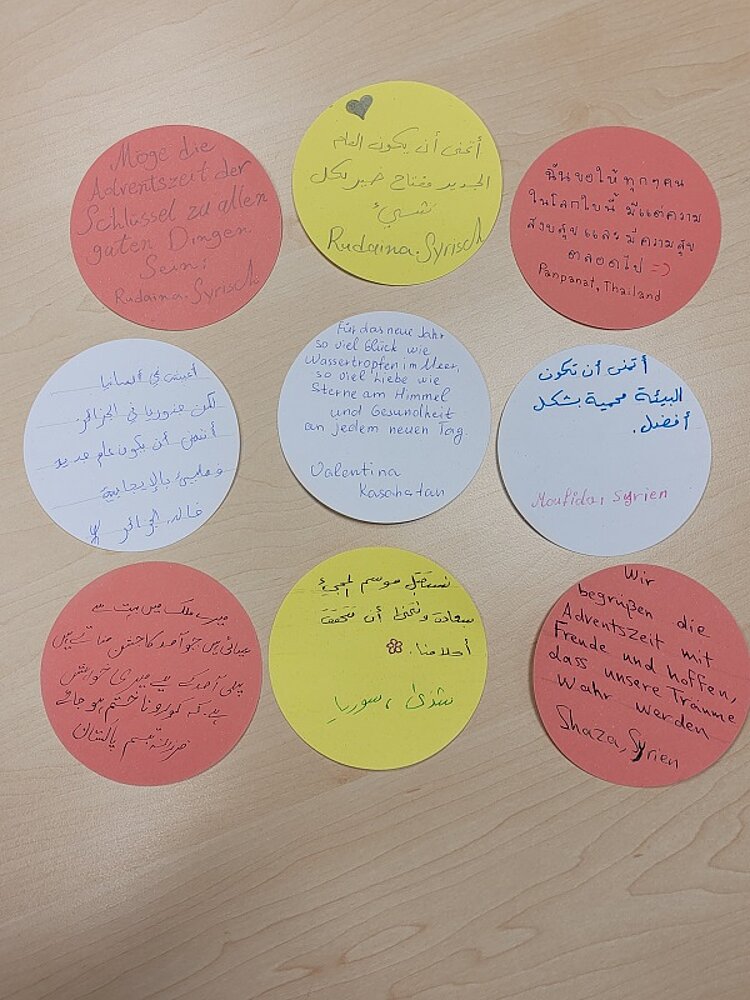 Möge die
Adventszeit der
Schlüssel zu allen
guten Dingen
Sein.
Rudaina.Syrisch
أتمنى أن يكون العام
الجديد مفتاح خير لكل
شيء
Rudaina.Syrisch
นั้นขอให้ทุกๆคน
ในโลกใบนี้ มีแต่ความ
สงบสุขและมีความสุข
ตลอดไป =)
Panpanat, Thailand
أعيش في ألمانيا
لكن جذوري في الجزائر.
أتمنى أن يكون عام جديد
و مليئ بالإيجابية
خالد، الجزائر
Für das neue Jahr
so viel Glück wie
Wassertropfen im Meer,
so viel Liebe wie
Sterne am Himmel
und Gesundheit
an jedem neuen Tag.
Valentina
Kasachstan
أتمنى أن تكون
البيئة محمية بشكل
أفضل.
Moufida, Syrien
میرے ملک میں بہت سے
عیسائی ہیں جو آمد کا جشن مناتے ہیں
آمد کے لیے میری خواہش
ہے۔ کہ کورونا ختم ہو جائے
تبسم پاکستان
نستقبل موسم المجيء
بسعادة ونتمنى أن تتحقق
أحلامنا.
شذى، سوريا
Wir
begrüßen die
Adventszeit mit
Freude und hoffen,
dass unsere Träume
wahr werden
Shaza, Syrien